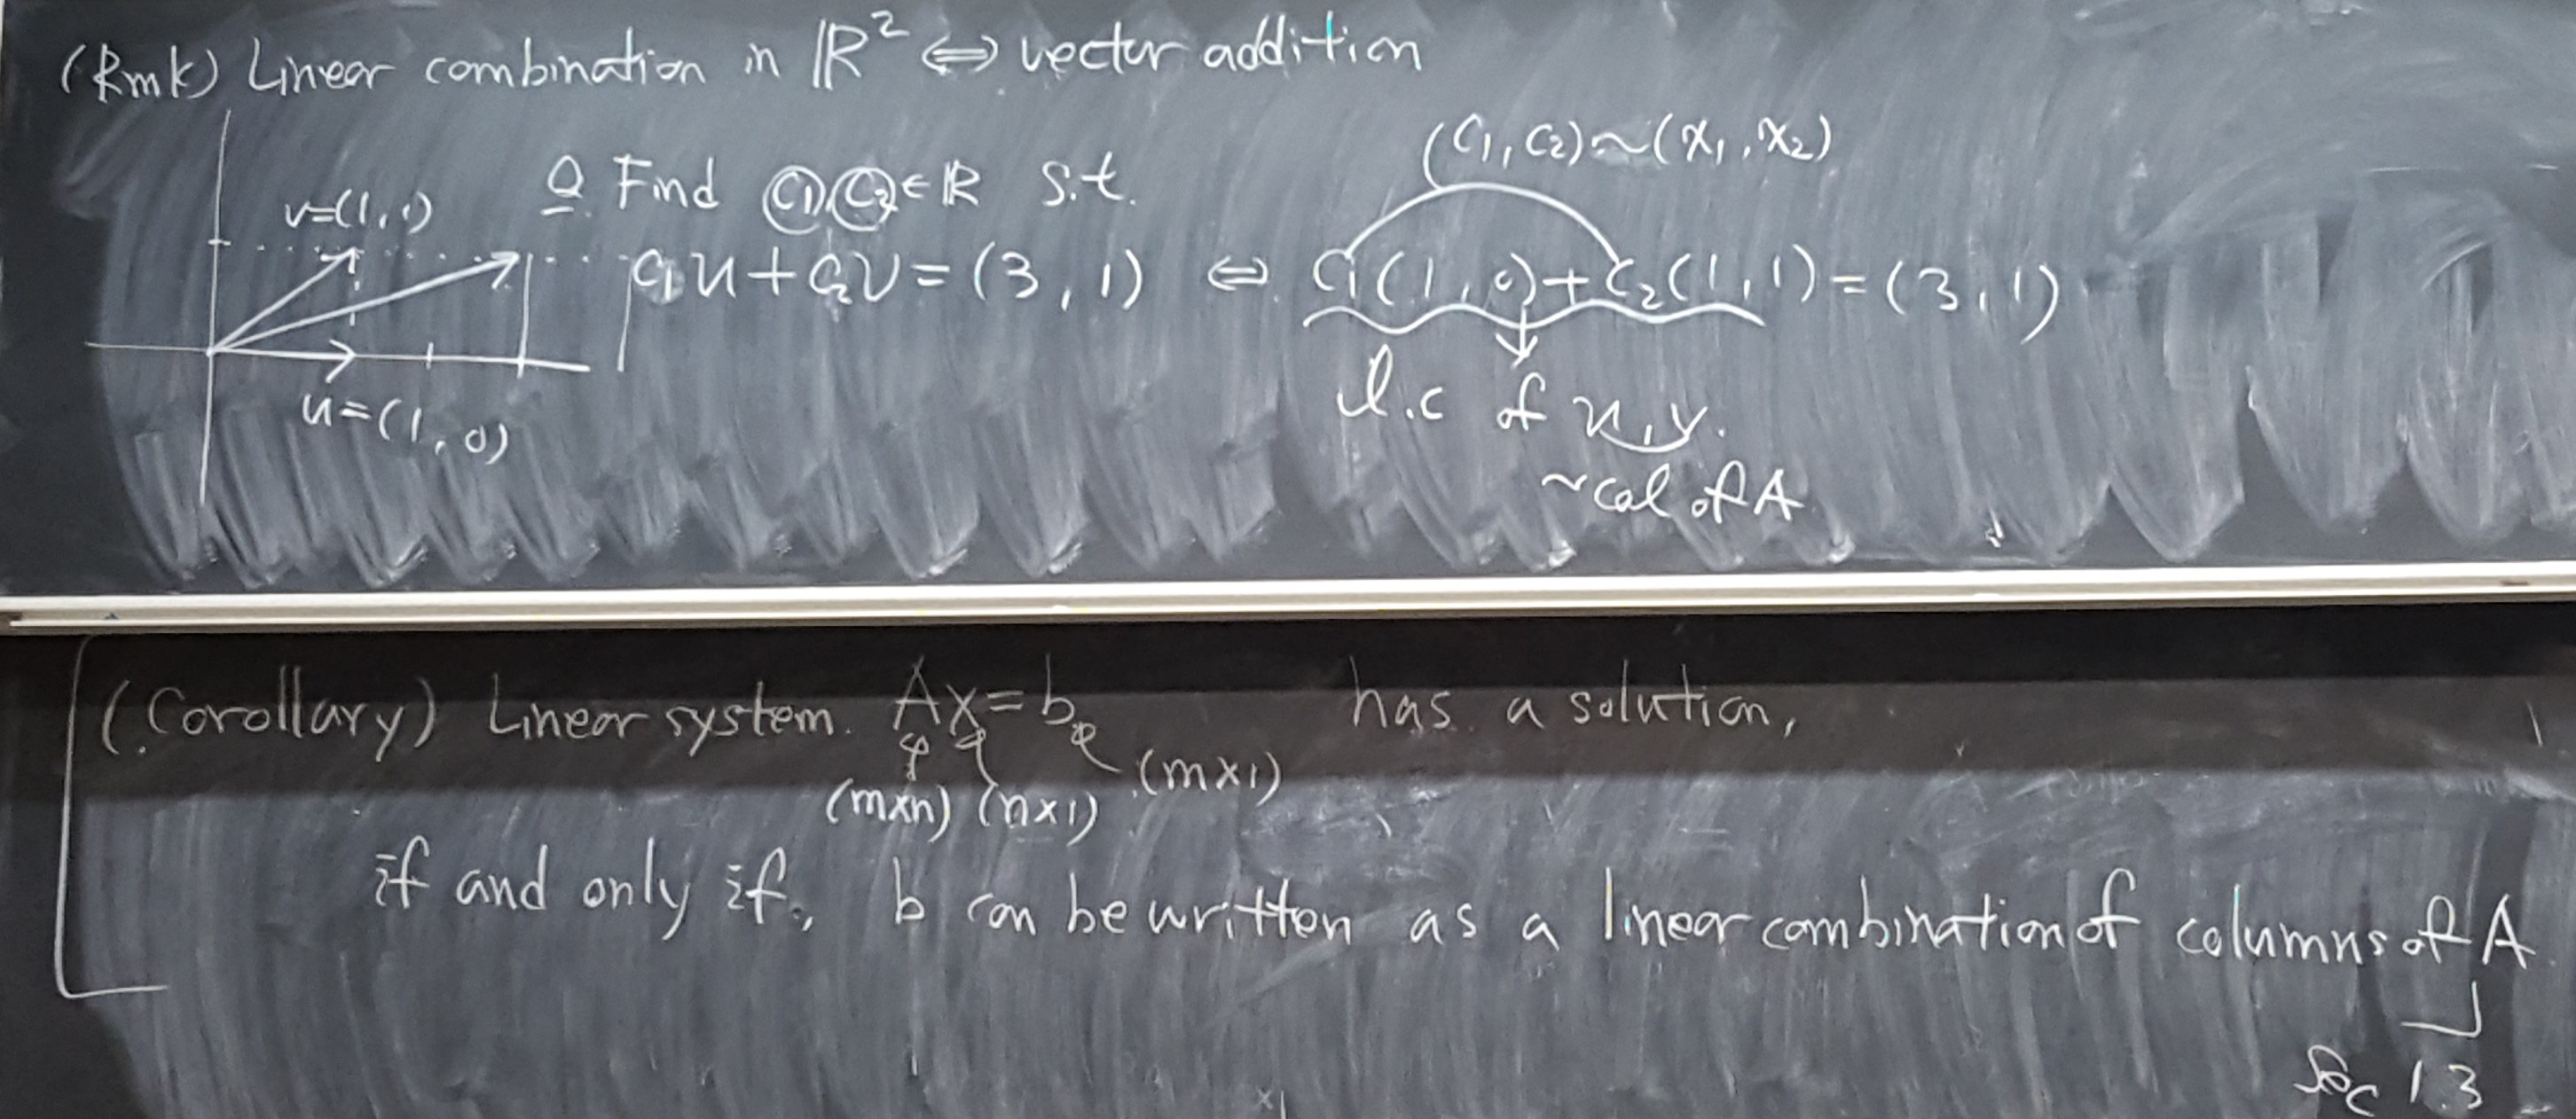 (Rmk) Linear combination in ℝ² ⇔ vector addition
(C₁, C₂) ~ (x₁, x₂)
Q. Find C₁, C₂ ∈ ℝ s.t.
v=(1,1)
C₁u + C₂v = (3, 1) ⇔ C₁(1, 0) + C₂(1, 1) = (3, 1)
u=(1, 0)
l.c of u, v.
~ col of A
(Corollary) Linear system. Ax=b has a solution,
(m×n) (n×1) (m×1)
if and only if, b can be written as a linear combination of columns of A
Sec 1.3